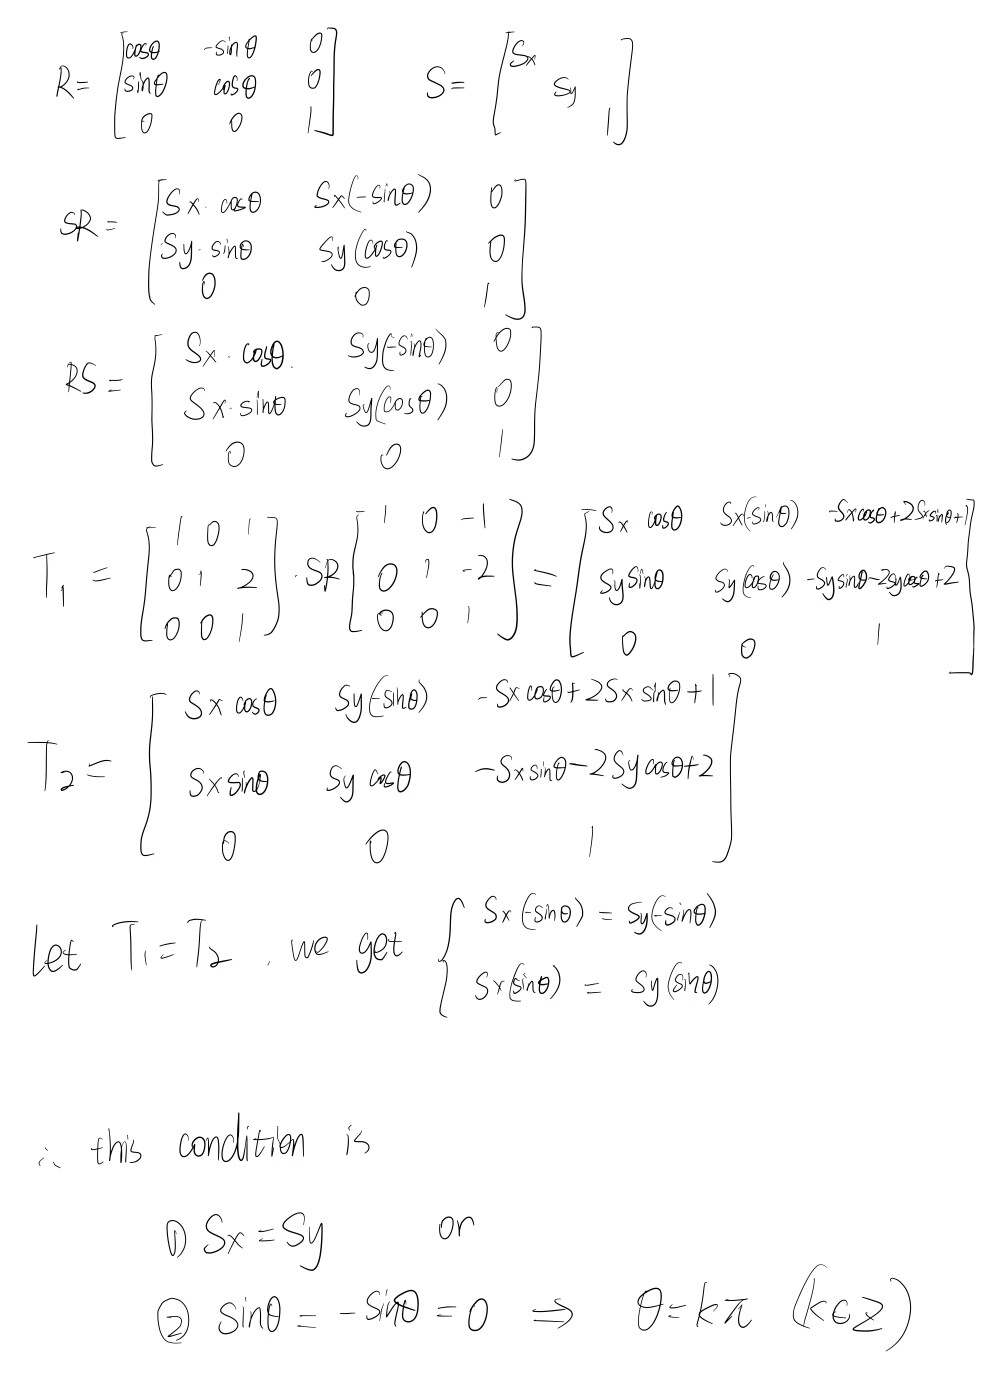 R= [cosθ -sinθ 0
sinθ cosθ 0
0 0 1]
S= [Sx
Sy
1]
SR = [Sx·cosθ Sx(-sinθ) 0
Sy·sinθ Sy(cosθ) 0
0 0 1]
RS = [Sx·cosθ Sy(-sinθ) 0
Sx·sinθ Sy(cosθ) 0
0 0 1]
T₁ = [1 0 1
0 1 2
0 0 1] · SR [1 0 -1
0 1 -2
0 0 1] = [Sx cosθ Sx(-sinθ) -Sxcosθ+2Sxsinθ+1
Sysinθ Sy(cosθ) -Sysinθ-2Sycosθ+2
0 0 1]
T₂ = [Sx cosθ Sy(-sinθ) -Sx cosθ+2Sx sinθ+1
Sx sinθ Sy cosθ -Sx sinθ-2Sy cosθ+2
0 0 1]
Let T₁=T₂, we get { Sx(-sinθ) = Sy(-sinθ)
Sx(sinθ) = Sy(sinθ)
∴ this condition is
① Sx=Sy or
② sinθ = -sinθ = 0 ⇒ θ=kπ (k∈Z)